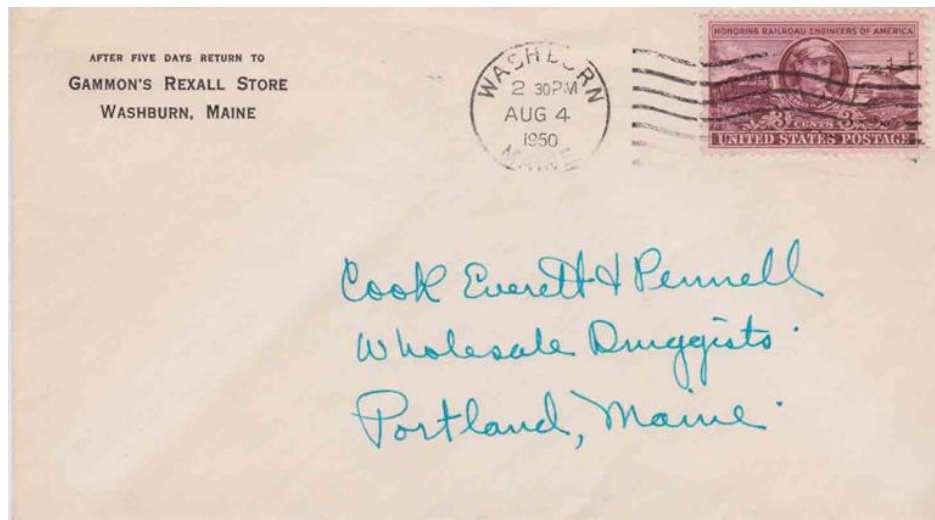 AFTER FIVE DAYS RETURN TO
GAMMON'S REXALL STORE
WASHBURN, MAINE
WASHBURN
2 30PM
AUG 4
1950
MAINE
HONORING RAILROAD ENGINEERS OF AMERICA
3 CENTS 3
UNITED STATES POSTAGE
Cook Everett & Pennell
Wholesale Druggists
Portland, Maine